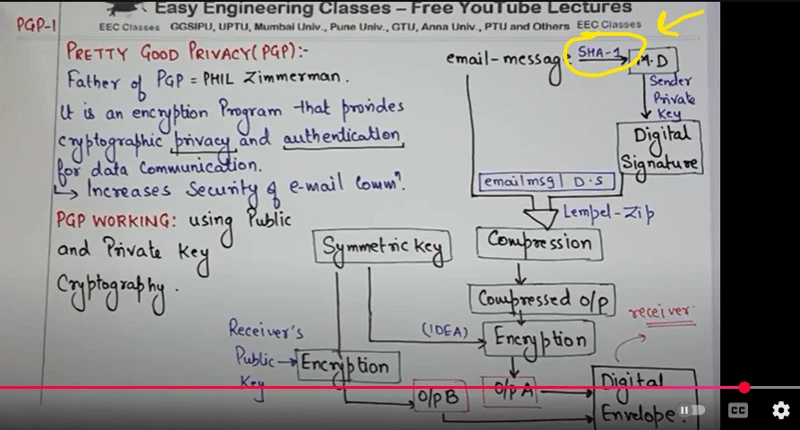 PGP-1
Easy Engineering Classes – Free YouTube Lectures
EEC Classes GGSIPU, UPTU, Mumbai Univ., Pune Univ., GTU, Anna Univ., PTU and Others EEC Classes
PRETTY GOOD PRIVACY(PGP):-
Father of PGP = PHIL Zimmerman.
It is an encryption Program that provides
cryptographic privacy and authentication
for data Communication.
↳ Increases Security of e-mail Commⁿ.
PGP WORKING: using Public
and Private Key
Cryptography.
email-message
SHA-1
M.D
Sender
Private
Key
Digital
Signature
email msg | D.S
Lempel-Zip
Compression
Compressed o/p
Symmetric key
(IDEA)
Encryption
Receiver's
Public
Key
Encryption
O/P B
O/P A
Digital
Envelope.
receiver
CC